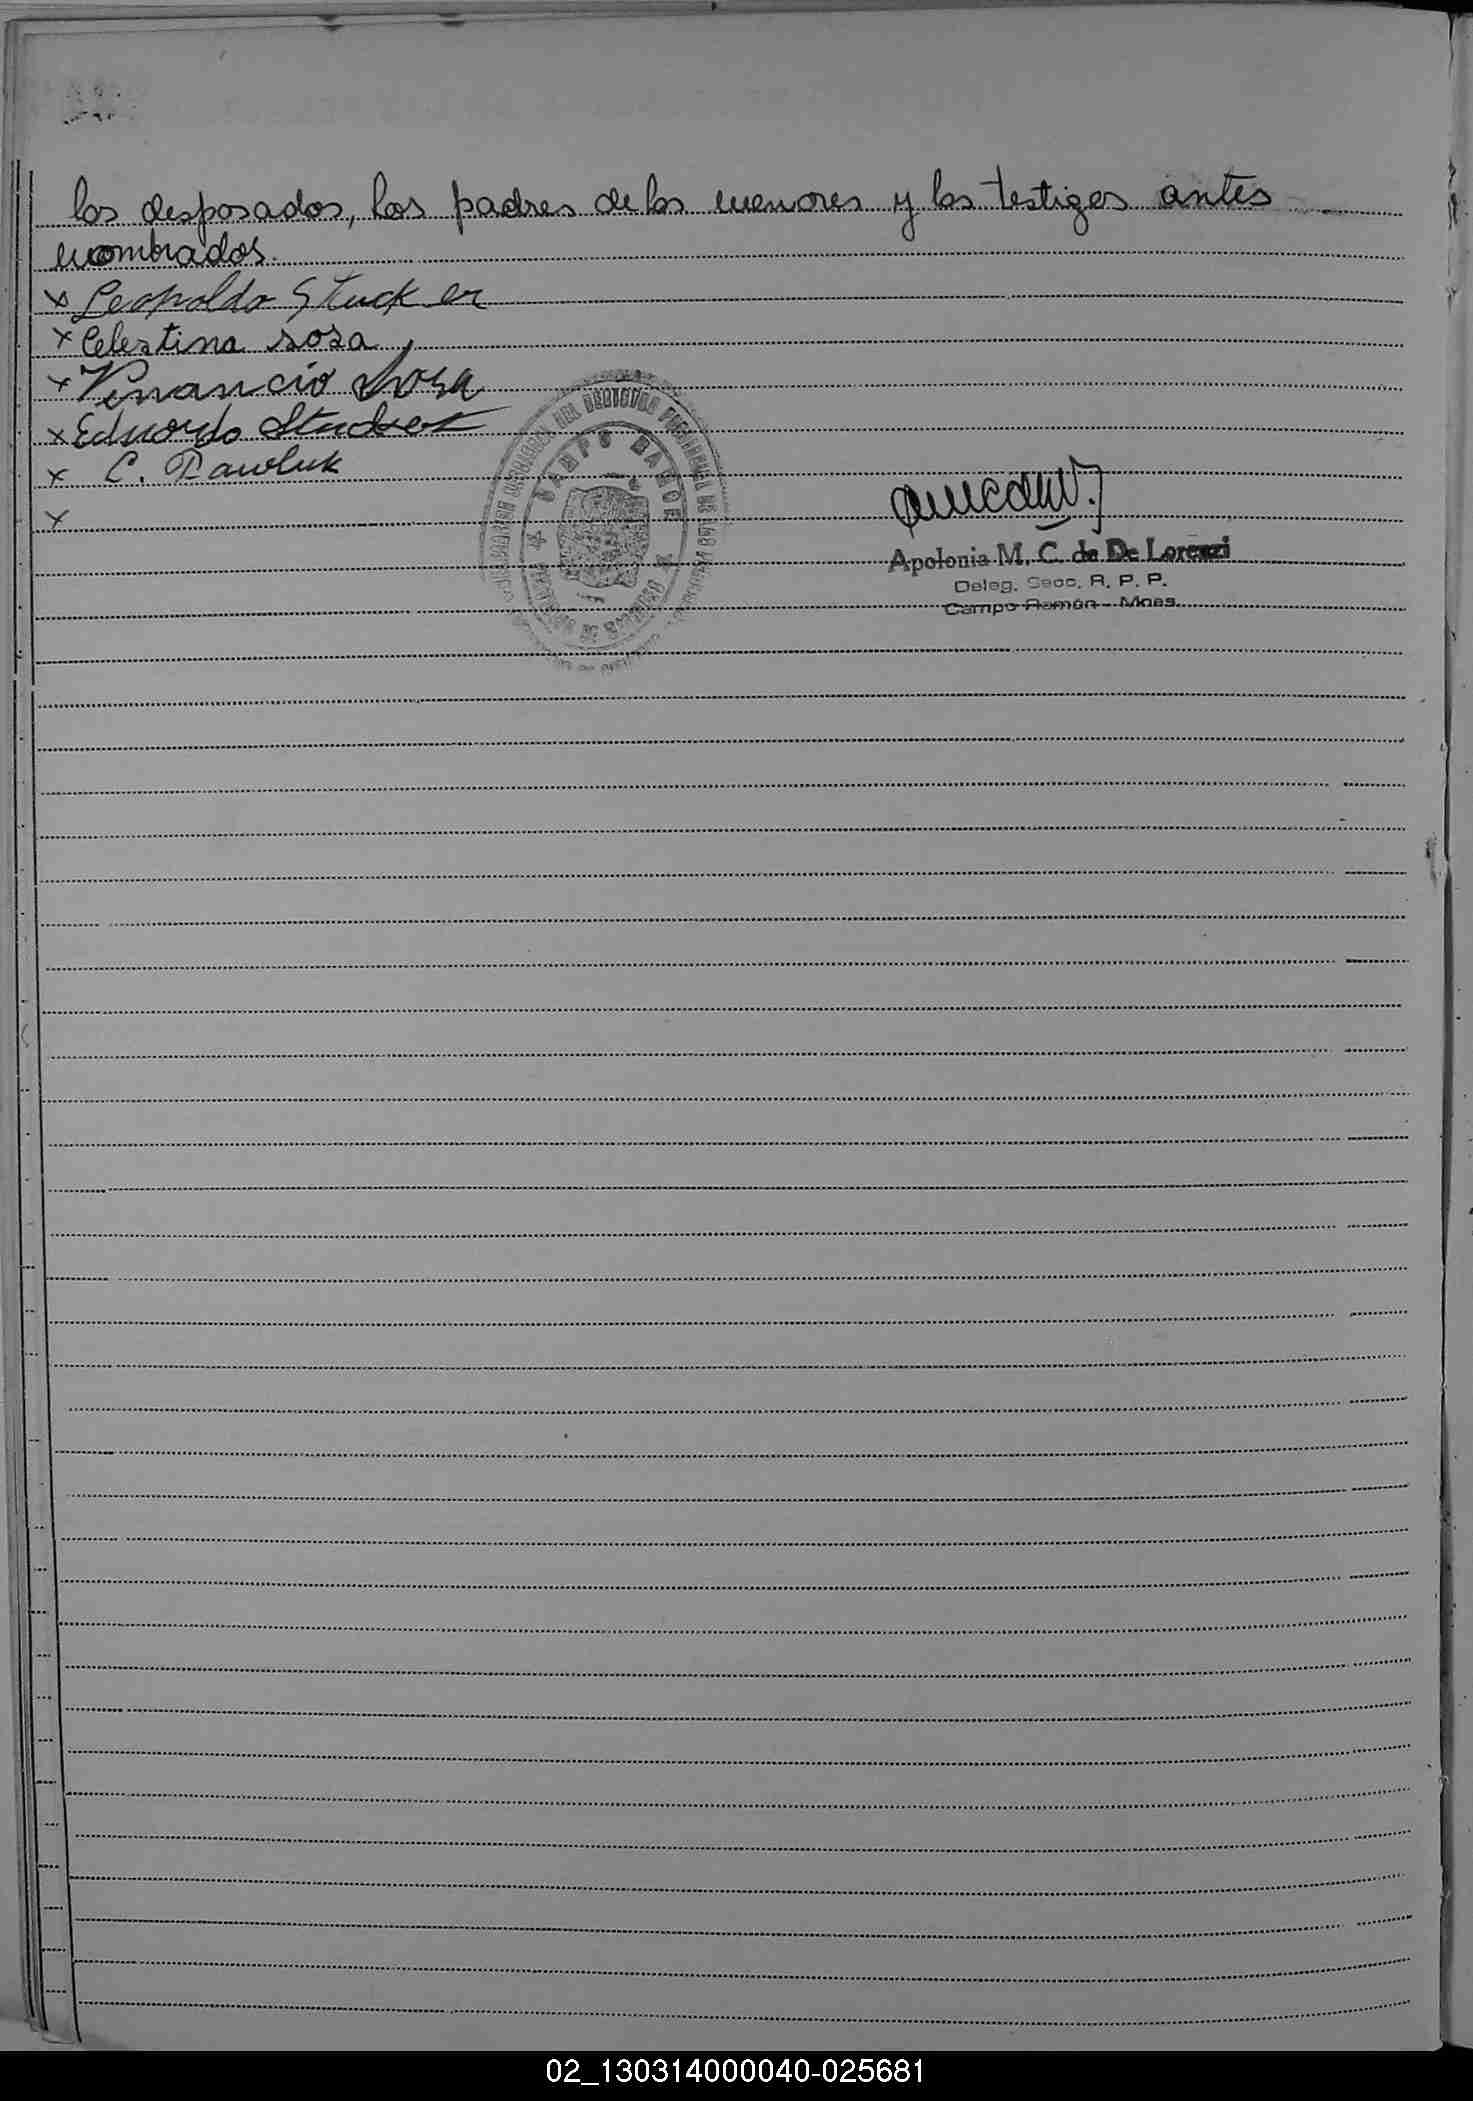 los desposados, los padres de los menores y los testigos antes
nombrados.
x Leopoldo Stucker
x Celestina sosa
x Venancio Sosa
x Eduardo Stucker
x C. Pawluk
x
CAMPO RAMON
Apolonia M. C. de De Lorenzi
Deleg. Secc. R. P. P.
Campo Ramón - Mnes.
02_130314000040-025681